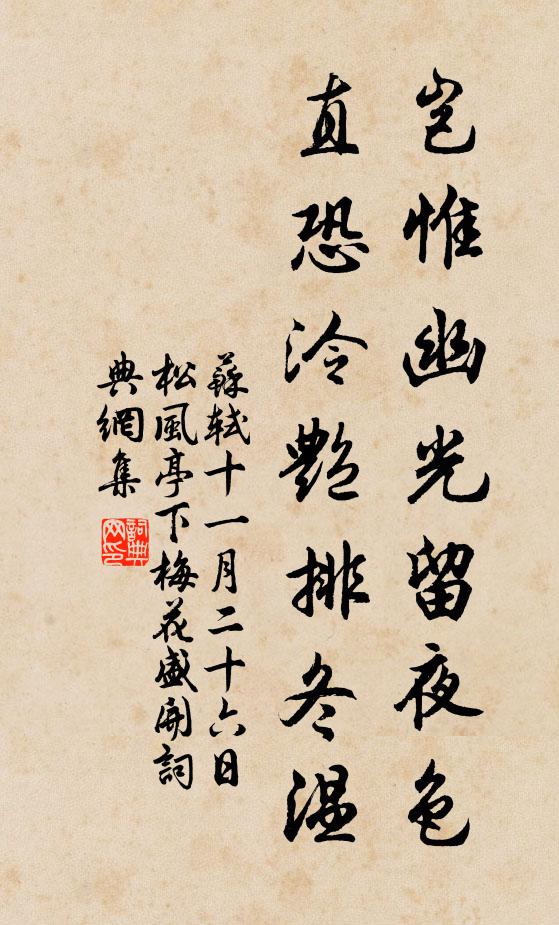 豈惟幽光留夜色
直恐泠艷排冬温
蘇軾十一月二十六日
松風亭下梅花盛開詞
典網集
詞典網印